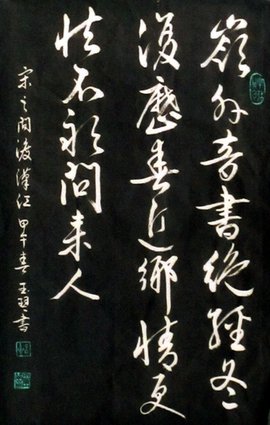 嶺外音書絕經冬
復歷春近鄉情更
怯不敢問来人
宋之問渡漢江甲午春玉琴書